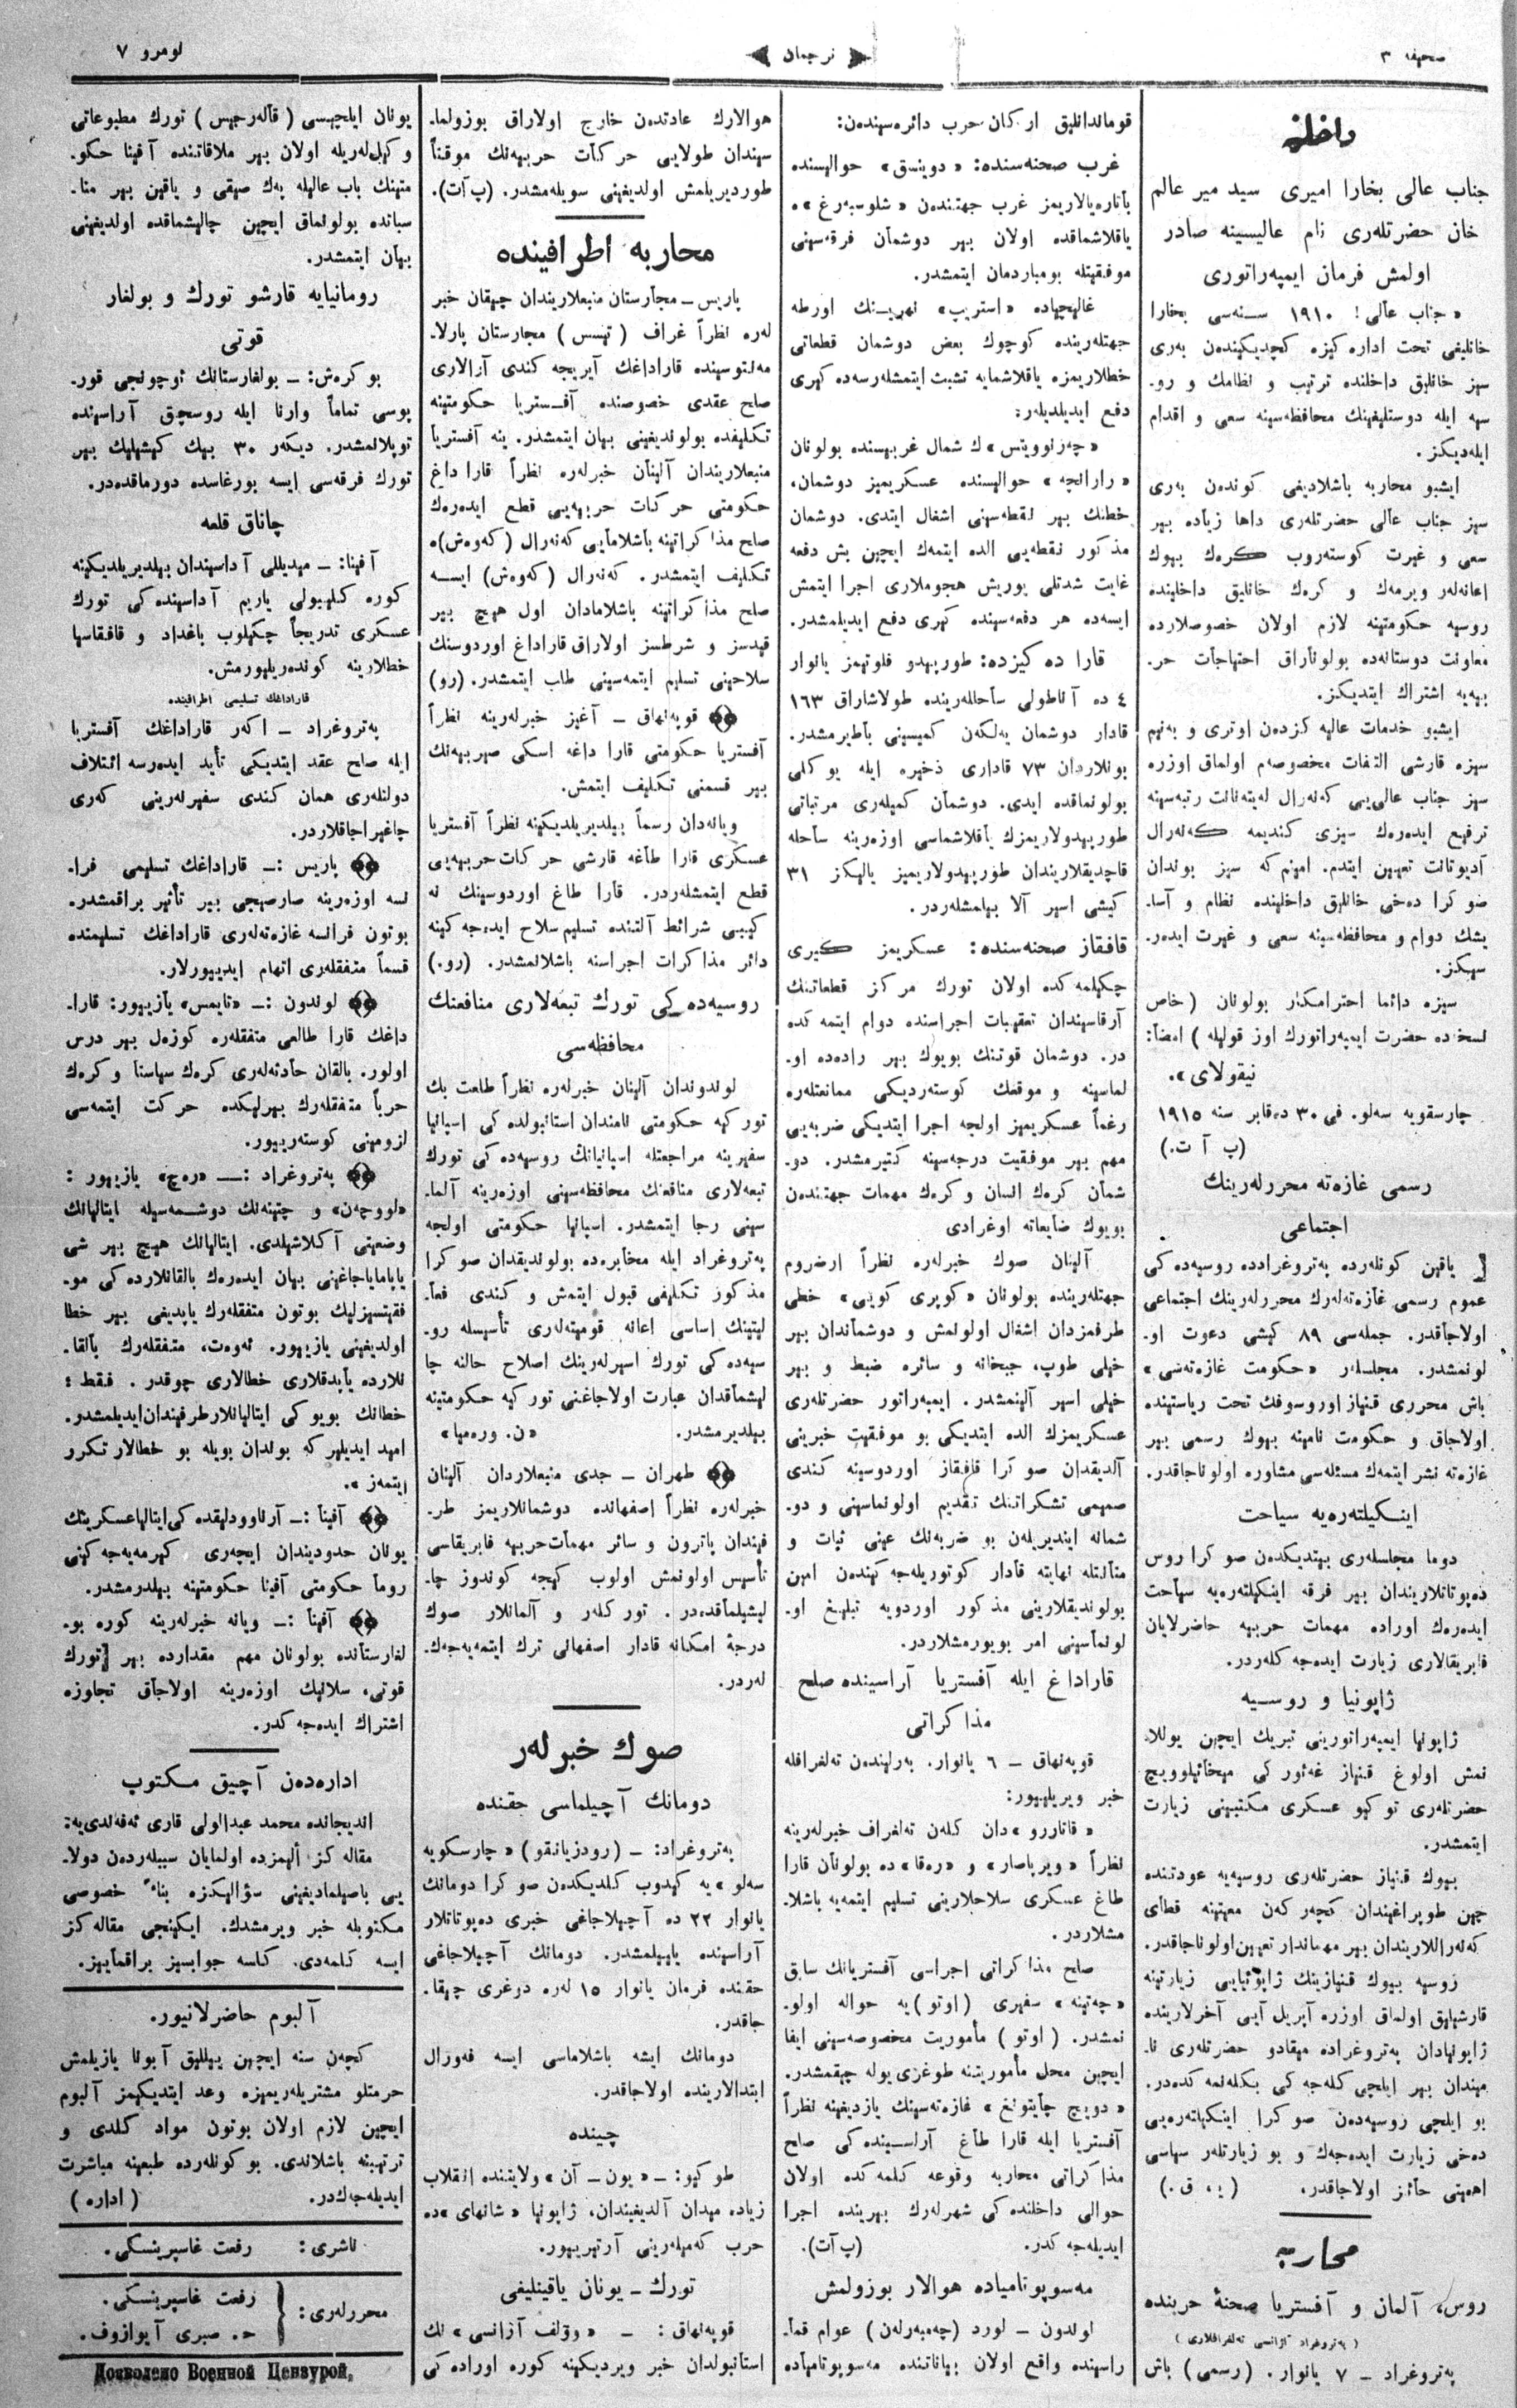 صحیفه ٣
ترجمان
نومرو ٧
داخلیه
جناب عالی بخارا امیری سید میر عالم
خان حضرتلەری نام عالیسینه صادر
اولمش فرمان ایمپەراتوری
« جناب عالی! ١٩١٠ سنەسی بخارا
خانلیغی تحت ادارەکیزه کچدیکیندەن بەری
سیز خانلیق داخلنده ترتیب و نظامك و رو-
سیه ایله دوستلیغینك محافظەسینه سعی و اقدام
ایلەدیکز.
ایشبو محاربه باشلادیغی کوندەن بەری
سیز جناب عالی حضرتلەری داها زیاده بیر
سعی و غیرت کوستەروب کرەك بیوك
اعانەلەر ویرمەك و کرەك خانلیق داخلینده
روسیه حکومتینه لازم اولان خصوصلارده
معاونت دوستانەده بولوناراق احتیاجات حر-
بیەیه اشتراك ایتدیکز.
ایشبو خدمات عالیه کزدەن اوتری و بەنیم
سیزه قارشی التفات مخصوصەم اولماق اوزره
سیز جناب عالی‌یی کەنەرال لەیتەنانت رتبەسینه
ترفیع ایدەرەك سیزی کندیمه کەنەرال
آدیوتانت تعیین ایتدم. امینم که سیز بوندان
صوکرا دەخی خانلیق داخلینده نظام و آسا-
یشك دوام و محافظەسینه سعی و غیرت ایدەر-
سیکز.
سیزه دائما احترامکار بولونان (خاص
نسخەده حضرت ایمپەراتورك اوز قولیله) امضا:
نیقولای».
چارسقویه سەلو. فی ٣٠ دەقابر سنه ١٩١٥
(پ آ ت.)
رسمی غازەته محررلەرینك
اجتماعی
یاقین کونلەرده پەتروغرادده روسیەده کی
عموم رسمی غازەتەلەرك محررلەرینك اجتماعی
اولاجاقدر. جملەسی ٨٩ کیشی دعوت او-
لونمشدر. مجلسلەر «حکومت غازەتەسی»
باش محرری قنیاز اوروسوفك تحت ریاستینده
اولاجاق و حکومت نامینه بیوك رسمی بیر
غازەته نشر ایتمەك مسئلەسی مشاوره اولوناجاقدر.
اینکیلتەرەیه سیاحت
دوما مجلسلەری بیتدیکدەن صوکرا روس
دەپوتاتلاریندان بیر فرقه اینکیلتەرەیه سیاحت
ایدەرەك اوراده مهمات حربیه حاضرلایان
فابریقالاری زیارت ایدەجەکلەردر.
ژاپونیا و روسیه
ژاپونیا ایمپەراتورینی تبریك ایچین یوللا-
نمش اولوغ قنیاز غەئورکی میخائیلوویچ
حضرتلەری توکیو عسکری مکتبینی زیارت
ایتمشدر.
بیوك قنیاز حضرتلەری روسیەیه عودتنده
چین طوپراغیندان کچەرکەن معیتینه قطای
کەنەراللاریندان بیر مهماندار تعیین اولوناجاقدر.
روسیه بیوك قنیازینك ژاپونیایی زیارتینه
قارشیلیق اولماق اوزره آپریل آیی آخرلارینده
ژاپونیادان پەتروغراده میقادو حضرتلەری نا-
میندان بیر ایلچی کلەجەکی بکلەنمەکدەدر.
بو ایلچی روسیەدەن صوکرا اینکیلتەرەیی
دەخی زیارت ایدەجەك و بو زیارتلەر سیاسی
اهمیتی حائز اولاجاقدر. (ی، ق.)
محاربه
روس، آلمان و آفستریا صحنۀ حربنده
(پەتروغراد آژانسی تەلغرافلاری)
پەتروغراد ـ ٧ یانوار. (رسمی) باش
قوماندانلیق ارکان حرب دائرەسیندەن:
غرب صحنەسنده: «دوینسق» حوالیسنده
باتارەیالاریمز غرب جهتندەن «شلوسبەرغ»ه
یاقلاشماقده اولان بیر دوشمان فرقەسینی
موفقیتله بومباردمان ایتمشدر.
غالیچیاده «استریپ» نهرینك اورطه
جهتلەرینده کوچوك بعض دوشمان قطعاتی
خطلاریمزه یاقلاشمایه تشبث ایتمشلەرسەده کیری
دفع ایدیلدیلەر.
«چەرنوویتس»ك شمال غربیسنده بولونان
«رارانچه» حوالیسنده عسکریمیز دوشمان،
خطنك بیر نقطەسینی اشغال ایتدی. دوشمان
مذکور نقطەیی الده ایتمەك ایچین بش دفعه
غایت شدتلی یوریش هجوملاری اجرا ایتمش
ایسەده هر دفعەسینده کیری دفع ایدیلمشدر.
قارا دەکیزده: طورپیدو فلوتیمز یانوار
٤ ده آناطولی ساحللەرینده طولاشاراق ١٦٣
قادار دوشمان یەلکەن کمیسینی باطیرمشدر.
بونلاردان ٧٣ قاداری ذخیره ایله یوکلی
بولونماقده ایدی. دوشمان کمیلەری مرتباتی
طورپیدولاریمزك یاقلاشماسی اوزەرینه ساحله
قاچدیقلاریندان طورپیدولاریمیز یالیکز ٣١
کیشی اسیر آلا بیلمشلەردر.
قافقاز صحنەسنده: عسکریمز کیری
چکیلمەکده اولان تورك مرکز قطعاتنك
آرقاسیندان تعقیبات اجراسنده دوام ایتمەکده
در. دوشمان قوتنك بویوك بیر رادەده او-
لماسینه و موقعك کوستەردیکی ممانعتلەره
رغماً عسکریمیز اولجه اجرا ایتدیکی ضربەیی
مهم بیر موفقیت درجەسینه کتیرمشدر. دو-
شمان کرەك انسان و کرەك مهمات جهتندەن
بویوك ضایعاته اوغرادی
آلینان صوك خبرلەره نظراً ارضروم
جهتلەرینده بولونان «کوپری کویی» خطی
طرفمزدان اشغال اولونمش و دوشماندان بیر
خیلی طوپ، جبخانه و سائره ضبط و بیر
خیلی اسیر آلینمشدر. ایمپەراتور حضرتلەری
عسکریمزك الده ایتدیکی بو موفقیت خبرینی
آلدیقدان صوکرا قافقاز اوردوسینه کندی
صمیمی تشکراتنك تقدیم اولونماسینی و دو-
شمانه ایندیریلەن بو ضربەنك عینی ثبات و
متانتله نهایته قادار کوتوریلەجەکیندەن امین
بولوندیقلارینی مذکور اوردویه تبلیغ او-
لونماسینی امر بویورمشلاردر.
قاراداغ ایله آفستریا آراسینده صلح
مذاکراتی
قوپەنهاق ـ ٦ یانوار. بەرلیندەن تەلغرافله
خبر ویریلییور:
«قاتاررو»دان کلەن تەلغراف خبرلەرینه
نظراً «ویرپاصار» و «رەقا»ده بولونان قارا
طاغ عسکری سلاحلارینی تسلیم ایتمەیه باشلا-
مشلاردر.
صلح مذاکراتی اجراسی آفستریانك سابق
«چەتینه» سفیری (اوتو)یه حواله اولو-
نمشدر. (اوتو) مأموریت مخصوصەسینی ایفا
ایچین محل مأموریتنه طوغری یوله چیقمشدر.
«دویچ چایتونغ» غازەتەسینك یازدیغینه نظراً
آفستریا ایله قارا طاغ آراسینده کی صلح
مذاکراتی محاربه وقوعه کلمەکده اولان
حوالی داخلنده کی شهرلەرك بیرینده اجرا
ایدیلەجەکدر. (پ آت).
مەسوپوتامیاده هوالار بوزولمش
لوندون ـ لورد (چەمبەرلەن) عوام قما-
راسینده واقع اولان بیاناتنده مەسوپوتامیاده
هوالارك عادتدەن خارج اولاراق بوزولما-
سیندان طولایی حرکات حربیەنك موقتاً
طوردیریلمش اولدیغینی سویلەمشدر. (پ‌آت).
محاربه اطرافینده
پاریس ـ مجارستان منبعلاریندان چیقان خبر
لەره نظراً غراف (تیسس) مجارستان پارلا-
مەنتوسینده قاراداغك آیریجه کندی آرالاری
صلح عقدی خصوصنده آفستریا حکومتینه
تکلیفده بولوندیغینی بیان ایتمشدر. ینه آفستریا
منبعلاریندان آلینان خبرلەره نظراً قارا داغ
حکومتی حرکات حربیەیی قطع ایدەرەك
صلح مذاکراتینه باشلامایی کەنەرال (کەوەش)ه
تکلیف ایتمشدر. کەنەرال (کەوەش) ایسه
صلح مذاکراتینه باشلامادان اول هیچ بیر
قیدسز و شرطسز اولاراق قاراداغ اوردوسنك
سلاحینی تسلیم ایتمەسینی طلب ایتمشدر. (رو)
قوپەنهاق ـ آغیز خبرلەرینه نظراً
آفستریا حکومتی قارا داغه اسکی صیربیەنك
بیر قسمنی تکلیف ایتمش.
ویانەدان رسماً بیلدیریلدیکینه نظراً آفستریا
عسکری قارا طاغه قارشی حرکات حربیەیی
قطع ایتمشلەردر. قارا طاغ اوردوسینك نه
کیبی شرائط آلتنده تسلیم سلاح ایدەجەکینه
دائر مذاکرات اجراسنه باشلانمشدر. (رو.)
روسیەده‌کی تورك تبعەلاری منافعنك
محافظەسی
لوندوندان آلینان خبرلەره نظراً طلعت بك
تورکیه حکومتی نامندان استانبولده کی اسپانیا
سفیرینه مراجعتله اسپانیانك روسیەده کی تورك
تبعەلاری منافعنك محافظەسینی اوزەرینه آلما-
سینی رجا ایتمشدر. اسپانیا حکومتی اولجه
پەتروغراد ایله مخابرەده بولوندیقدان صوکرا
مذکور تکلیفی قبول ایتمش و کندی فعا-
لیتینك اساسی اعانه قومیتەلەری تأسیسله رو-
سیەده کی تورك اسیرلەرینك اصلاح حالنه چا
لیشماقدان عبارت اولاجاغنی تورکیه حکومتینه
بیلدیرمشدر. «ن. ورەمیا»
طهران ـ جدی منبعلاردان آلینان
خبرلەره نظراً اصفهانده دوشمانلاریمز طر-
فیندان پاترون و سائر مهمات حربیه فابریقاسی
تأسیس اولونمش اولوب کیجه کوندوز چا-
لیشیلماقدەدر. تورکلەر و آلمانلار صوك
درجۀ امکانه قادار اصفهانی ترك ایتمەیەجەك-
لەردر.
صوك خبرلەر
دومانك آچیلماسی حقنده
پەتروغراد: ـ (رودزیانقو) «چارسکویه
سەلو»یه کیدوب کلدیکدەن صوکرا دومانك
یانوار ٢٢ ده آچیلاجاغی خبری دەپوتاتلار
آراسینده یاییلمشدر. دومانك آچیلاجاغی
حقنده فرمان یانوار ١٥ لەره دوغری چیقا-
جاقدر.
دومانك ایشه باشلاماسی ایسه فەورال
ابتدالارینده اولاجاقدر.
چینده
طوکیو: ـ «یون ـ آن» ولایتنده انقلاب
زیاده میدان آلدیغیندان، ژاپونیا «شانهای»ده
حرب کەمیلەرینی آرتیرییور.
تورك ـ یونان یاقینلیغی
قوپەنهاق: ـ «وولف آژانسی»نك
استانبولدان خبر ویردیکینه کوره اوراده‌کی
یونان ایلچیسی (قالەرجیس) تورك مطبوعاتی
وکیللەریله اولان بیر ملاقاتنده آفینا حکو-
متینك باب عالیله پەك صیقی و یاقین بیر منا-
سباتده بولونماق ایچین چالیشماقده اولدیغینی
بیان ایتمشدر.
رومانیایه قارشو تورك و بولغار
قوتی
بوکرەش: ـ بولغارستانك ئوچونجی قور-
پوسی تماماً وارنا ایله روسچق آراسینده
توپلانمشدر. دیکەر ٣٠ بیك کیشیلیك بیر
تورك فرقەسی ایسه بورغاسده دورماقدەدر.
چاناق قلعه
آفینا: ـ میدیللی آداسیندان بیلدیریلدیکینه
کوره کلیبولی یاریم آداسینده کی تورك
عسکری تدریجاً چکیلوب باغداد و قافقاسیا
خطلارینه کوندەریلییورمش.
قاراداغك تسلیمی اطرافینده
پەتروغراد ـ اکەر قاراداغك آفستریا
ایله صلح عقد ایتدیکی تأید ایدەرسه ائتلاف
دولتلەری همان کندی سفیرلەرینی کەری
چاغیراجاقلاردر.
پاریس: ـ قاراداغك تسلیمی فرا-
نسه اوزەرینه صارصیجی بیر تأثیر براقمشدر.
بوتون فرانسه غازەتەلەری قاراداغك تسلیمنده
قسماً متفقلەری اتهام ایدییورلار.
لوندون: ـ «تایمس» یازییور: قارا-
داغك قارا طالعی متفقلەره کوزەل بیر درس
اولور. بالقان حادثەلەری کرەك سیاستا و کرەك
حرباً متفقلەرك بیرلیکده حرکت ایتمەسی
لزومینی کوستەرییور.
پەتروغراد: ـ «رەچ» یازییور:
«لووچەن» و چتینەنك دوشمەسیله ایتالیانك
وضعیتی آکلاشیلدی. ایتالیانك هیچ بیر شی
یاپامایاجاغینی بیان ایدەرەك بالقانلارده کی مو-
فقیتسزلیك بوتون متفقلەرك یاپدیغی بیر خطا
اولدیغینی یازییور. ئەوەت، متفقلەرك بالقا-
نلارده یاپدقلاری خطالاری چوقدر. فقط؛
خطانك بویوکی ایتالیانلار طرفیندان ایدیلمشدر.
امید ایدیلیر که بوندان بویله بو خطالار تکرر
ایتمەز».
آفینا: ـ آرناوودلیقده کی ایتالیا عسکرینك
یونان حدودیندان ایچەری کیرمەیەجەکینی
روما حکومتی آفینا حکومتینه بیلدرمشدر.
آفینا: ـ ویانه خبرلەرینه کوره بو-
لغارستانده بولونان مهم مقدارده بیر تورك
قوتی، سلانیك اوزەرینه اولاجاق تجاوزه
اشتراك ایدەجەکدر.
ادارەدەن آچیق مکتوب
اندیجانده محمد عبدالولی قاری ئەفەندی‌یه:
مقالەکز ألیمزده اولمایان سببلەردن دولا-
یی باصیلمادیغینی سؤالیکزه بناءً خصوصی
مکتوبله خبر ویرمشدك. ایکینجی مقالەکز
ایسه کلمەدی. کلسه جوابسیز براقمایز.
آلبوم حاضرلانیور.
کچەن سنه ایچین ییللیق آبونا یازیلمش
حرمتلو مشتریلەریمیزه وعد ایتدیکیمز آلبوم
ایچین لازم اولان بوتون مواد کلدی و
ترتیبنه باشلاندی. بو کونلەرده طبعینه مباشرت
ایدیلەجەك‌در. (اداره)
ناشری: رفعت غاسپرینسکی.
محررلەری: رفعت غاسپرینسکی.
ح. صبری آیوازوف.
Дозволено Военной Цензурой.